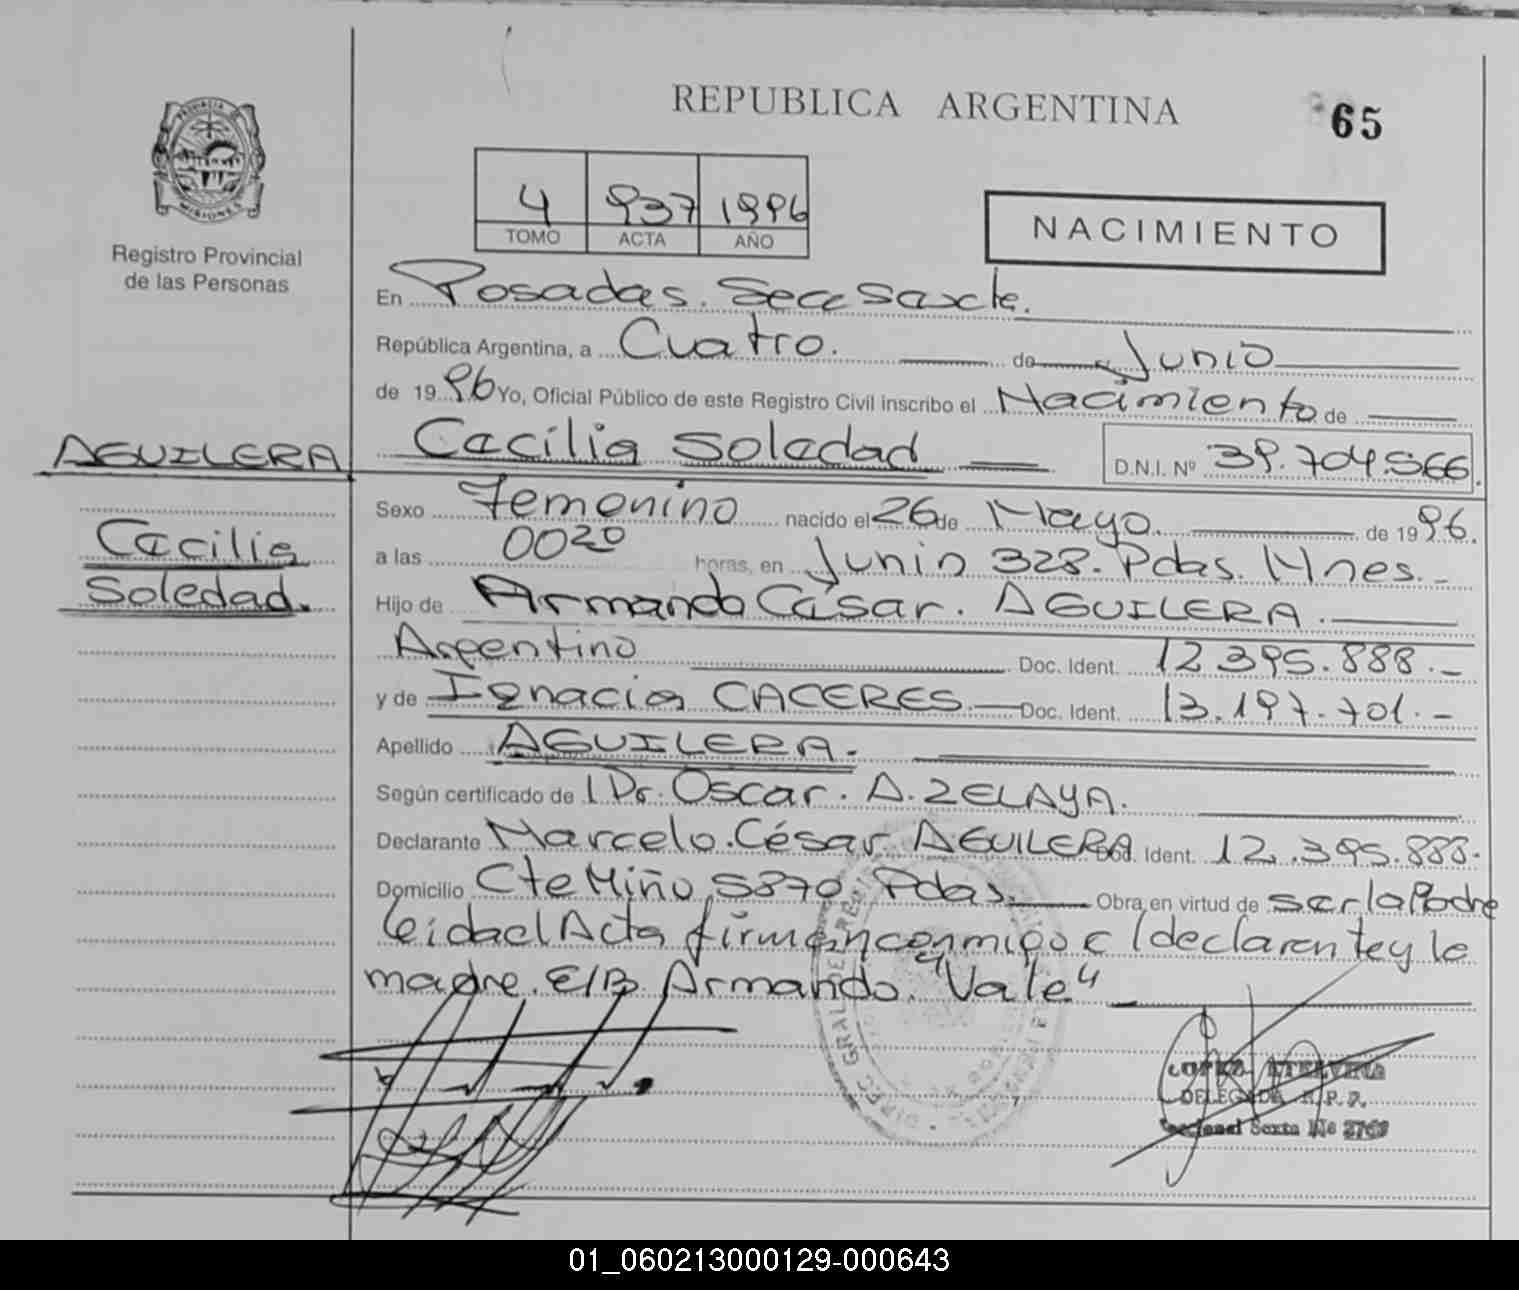 REPUBLICA ARGENTINA
65
PROVINCIA DE
MISIONES
Registro Provincial
de las Personas
4 937 1996
TOMO ACTA AÑO
NACIMIENTO
En Posadas. Secc Sexta.
República Argentina, a Cuatro. de Junio
de 1996 Yo, Oficial Público de este Registro Civil inscribo el Nacimiento de
AGUILERA Cecilia Soledad D.N.I. Nº 39.704.566
Sexo Femenino nacido el 26 de Mayo. de 1996.
Cecilia
Soledad.
a las 0020 horas, en Junin 328. Pdas. Mnes.-
Hijo de Armando César. AGUILERA.
Argentino Doc. Ident. 12.395.888.-
y de Ignacia CACERES Doc. Ident. 13.197.701.-
Apellido AGUILERA.
Según certificado de Dr. Oscar. A. ZELAYA.
Declarante Marcelo. César AGUILERA Doc. Ident. 12.395.888.
Domicilio Cte Miño 5870 Pdas. Obra en virtud de ser la Padre
leida el Acta firman conmigo el declarante y la
madre. E/B. Armando. "Vale"
DELEGADA R.P.P.
Seccional Sexta
01_060213000129-000643